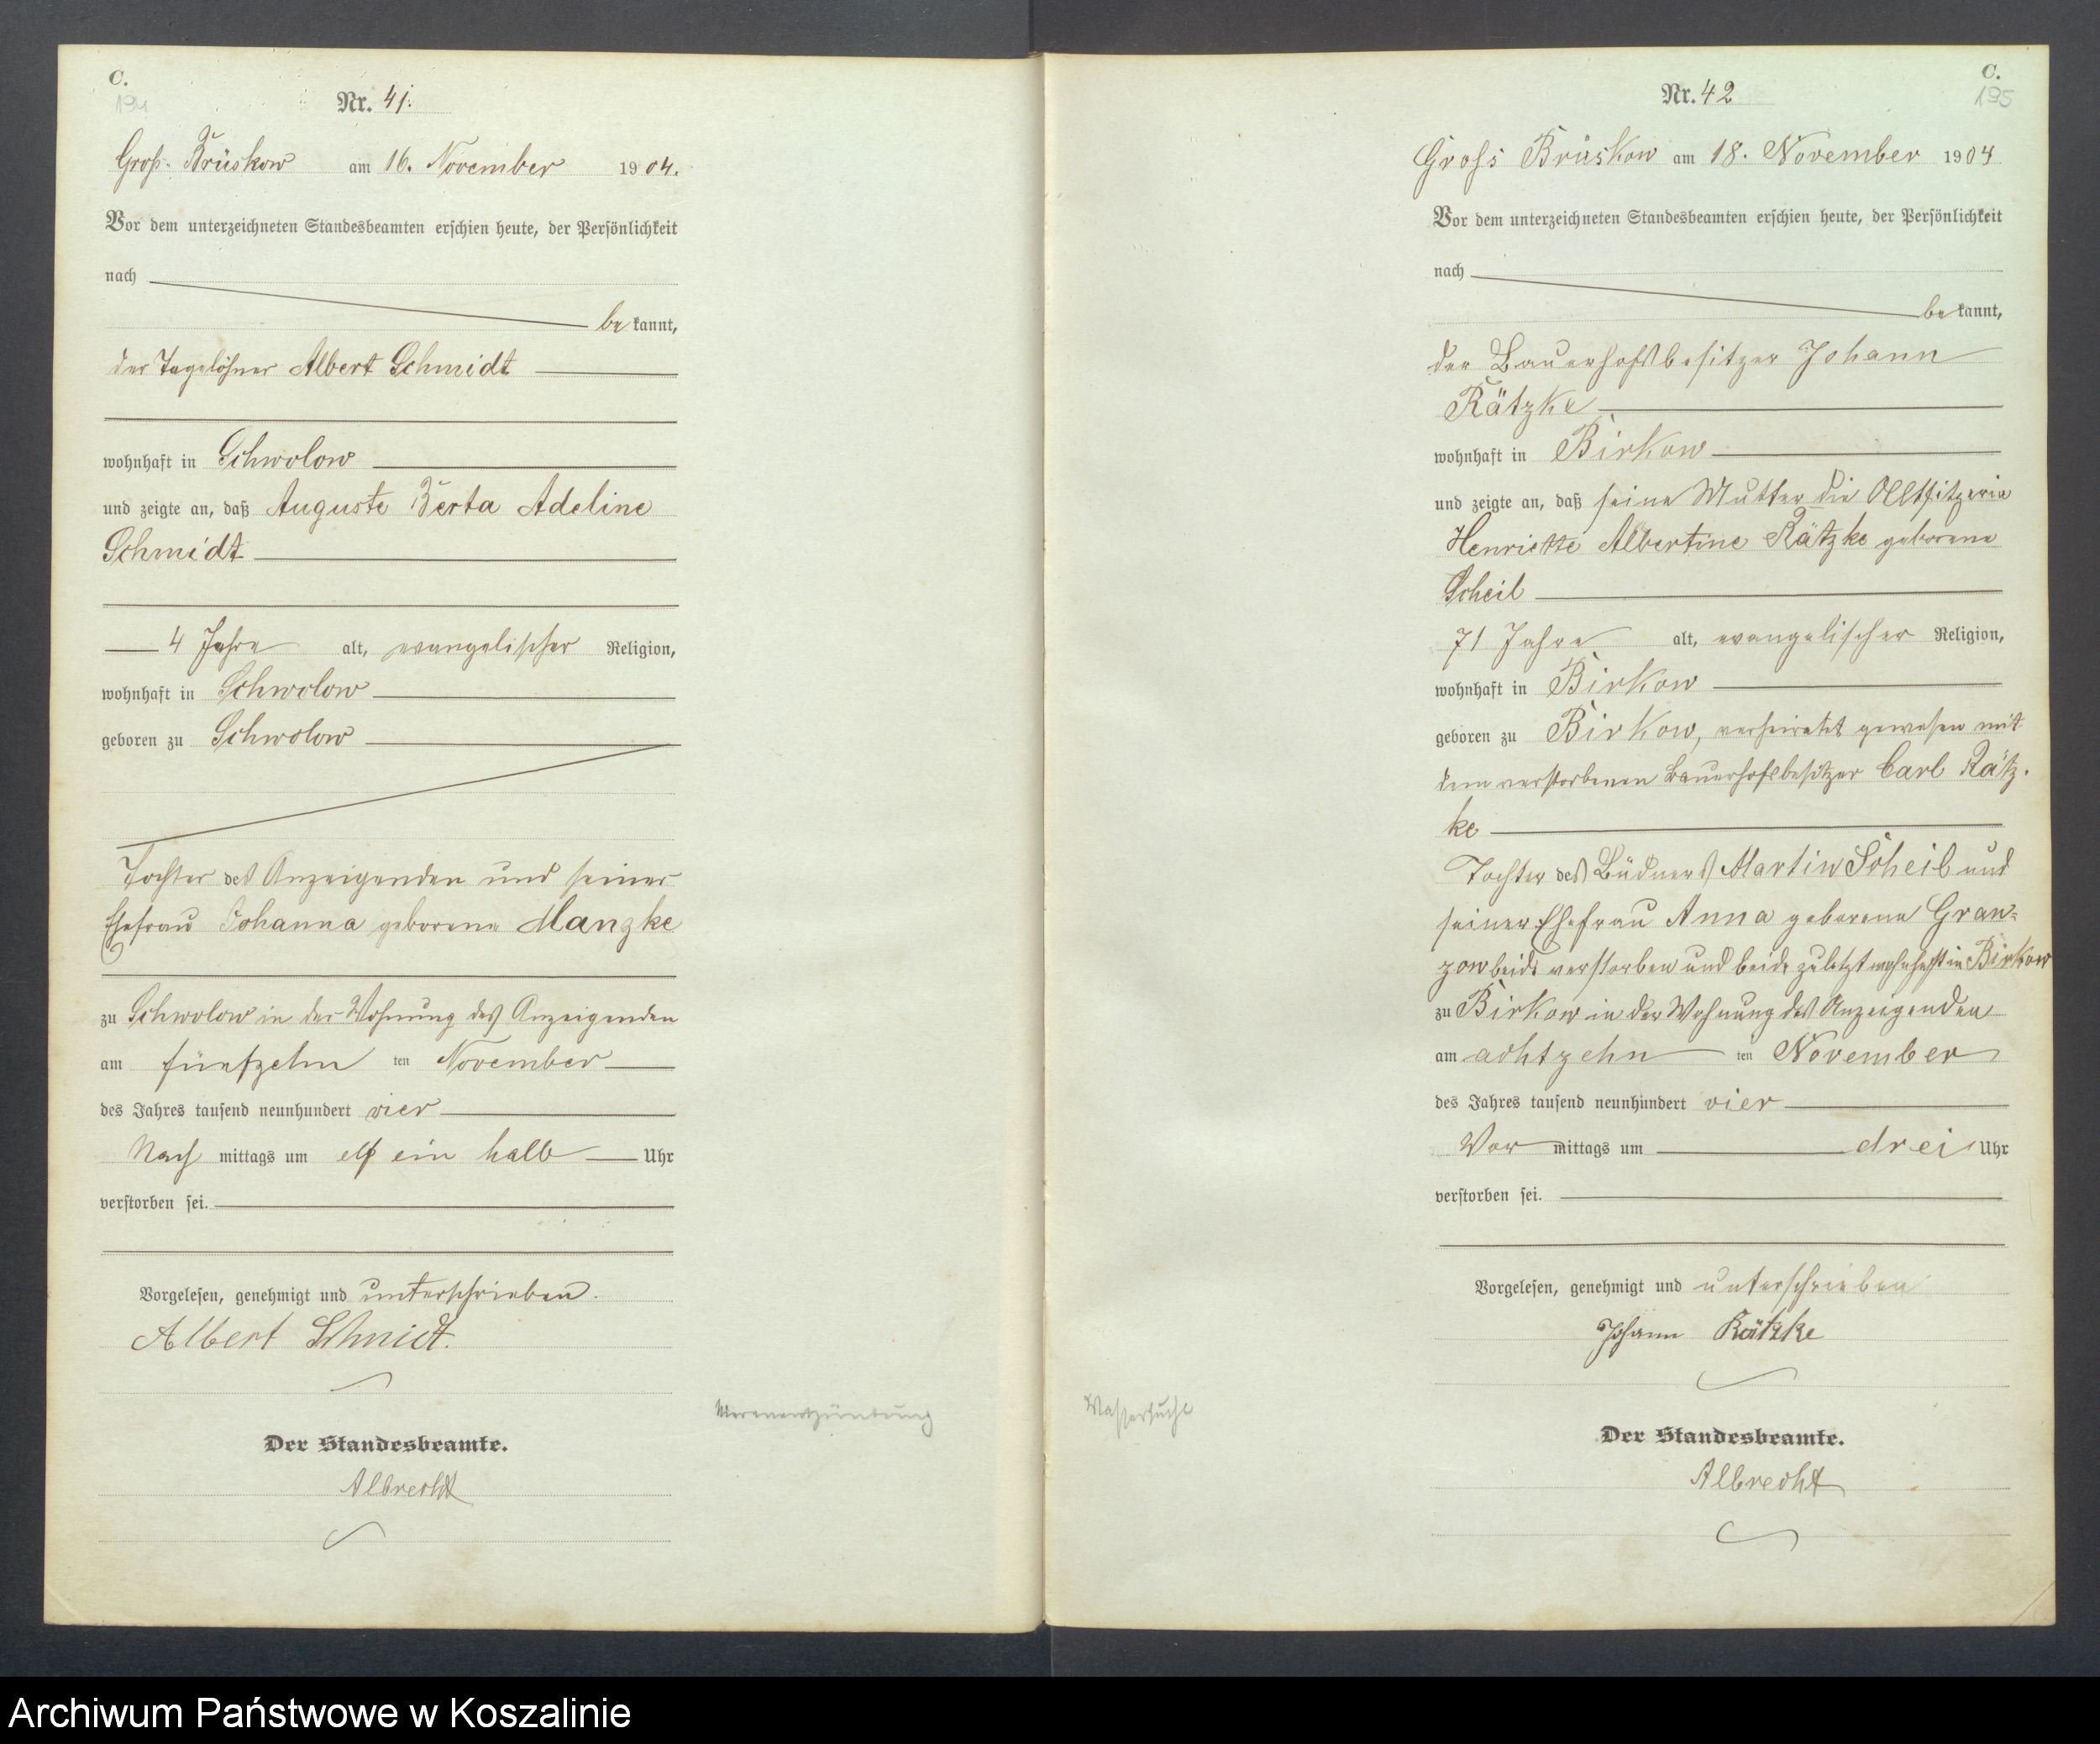 C.
194
Nr. 41.
Groß-Brüskow am 16. November 1904.
Vor dem unterzeichneten Standesbeamten erschien heute, der Persönlichkeit
nach
be kannt,
der Tagelöhner Albert Schmidt
wohnhaft in Schwolow
und zeigte an, daß Auguste Berta Adeline
Schmidt
4 Jahre alt, evangelischer Religion,
wohnhaft in Schwolow
geboren zu Schwolow
Tochter des Anzeigenden und seiner
Ehefrau Johanna geborene Manzke
zu Schwolow in der Wohnung des Anzeigenden
am fünfzehn ten November
des Jahres tausend neunhundert vier
Nach mittags um elf ein halb Uhr
verstorben sei.
Vorgelesen, genehmigt und unterschrieben.
Albert Schmidt.
Der Standesbeamte.
Albrecht
Nierenentzündung
C.
195
Nr. 42
Gross Brüskow am 18. November 1904
Vor dem unterzeichneten Standesbeamten erschien heute, der Persönlichkeit
nach
be kannt,
der Bauerhofsbesitzer Johann
Rätzke
wohnhaft in Birkow
und zeigte an, daß seine Mutter die Altsitzerin
Henriette Albertine Rätzke geborene
Scheil
71 Jahre alt, evangelischer Religion,
wohnhaft in Birkow
geboren zu Birkow, verheiratet gewesen mit
dem verstorbenen Bauerhofsbesitzer Carl Rätz-
ke
Tochter des Büdners Martin Scheil und
seiner Ehefrau Anna geborene Gran-
zow beide verstorben und beide zuletzt wohnhaft in Birkow
zu Birkow in der Wohnung des Anzeigenden
am achtzehn ten November
des Jahres tausend neunhundert vier
Vor mittags um drei Uhr
verstorben sei.
Vorgelesen, genehmigt und unterschrieben
Johann Rätzke
Wassersucht
Der Standesbeamte.
Albrecht
Archiwum Państwowe w Koszalinie